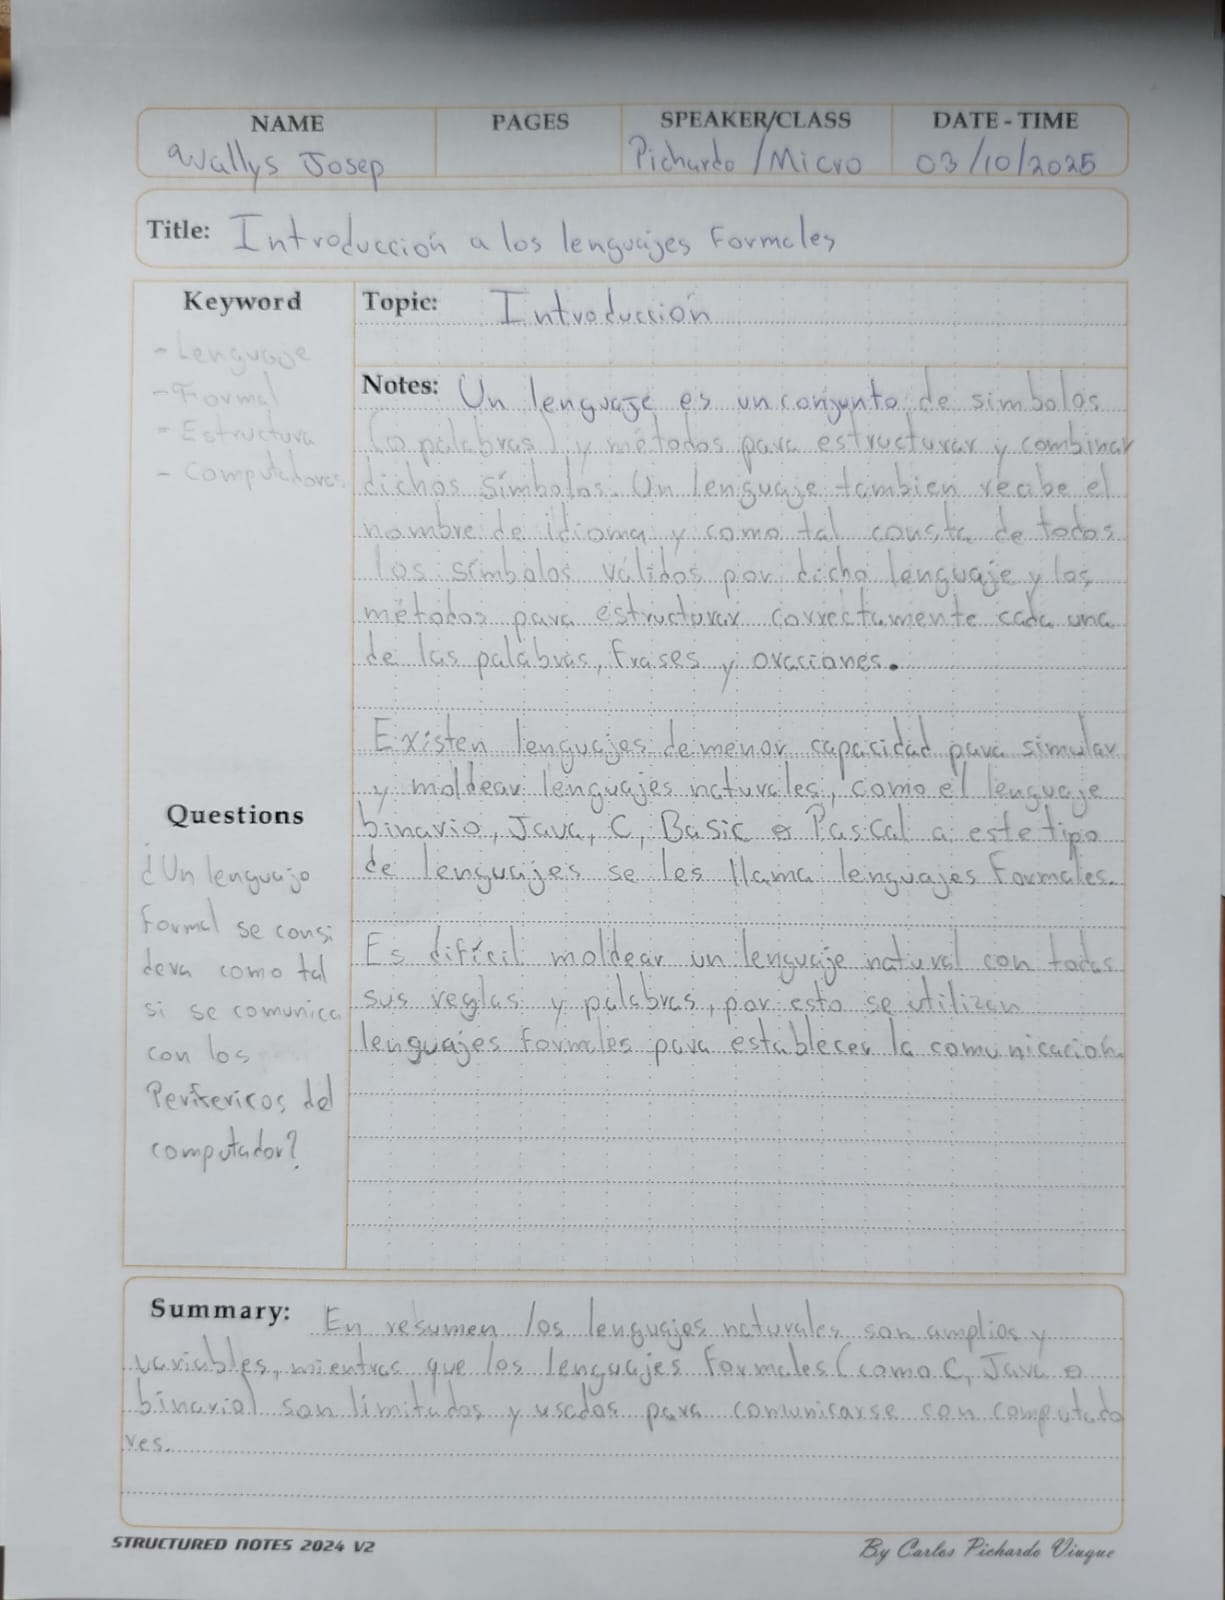 NAME PAGES SPEAKER/CLASS DATE - TIME
Wallys Josep Pichardo/Micro 03/10/2025
Title: Introduccion a los lenguajes Formales
Keyword
- Lenguaje
- Formal
- Estructura
- Computadores
Topic: Introducción
Notes: Un lenguaje es un conjunto de simbolos
(o palabras) y métodos para estructurar y combinar
dichos símbolos. Un lenguaje tambien recibe el
nombre de idioma y como tal consta de todos
los símbolos válidos por dicho lenguaje y los
métodos para estructurar correctamente cada una
de las palabras, frases y oraciones.
Existen lenguajes de menor capacidad para simular
y moldear lenguajes naturales, como el lenguaje
binario, Java, C, Basic o Pascal a este tipo
de lenguajes se les llama lenguajes Formales.
Es difícil moldear un lenguaje natural con todas
sus reglas y palabras, por esto se utilizan
lenguajes formales para establecer la comunicación.
Questions
¿Un lenguaje
Formal se consi
dera como tal
si se comunica
con los
Perifericos del
computador?
Summary: En resumen los lenguajes naturales son amplios y
variables, mientras que los lenguajes Formales (como C, Java o
binario) son limitados y usados para comunicarse con computado
res.
STRUCTURED NOTES 2024 V2
By Carlos Pichardo Viuque